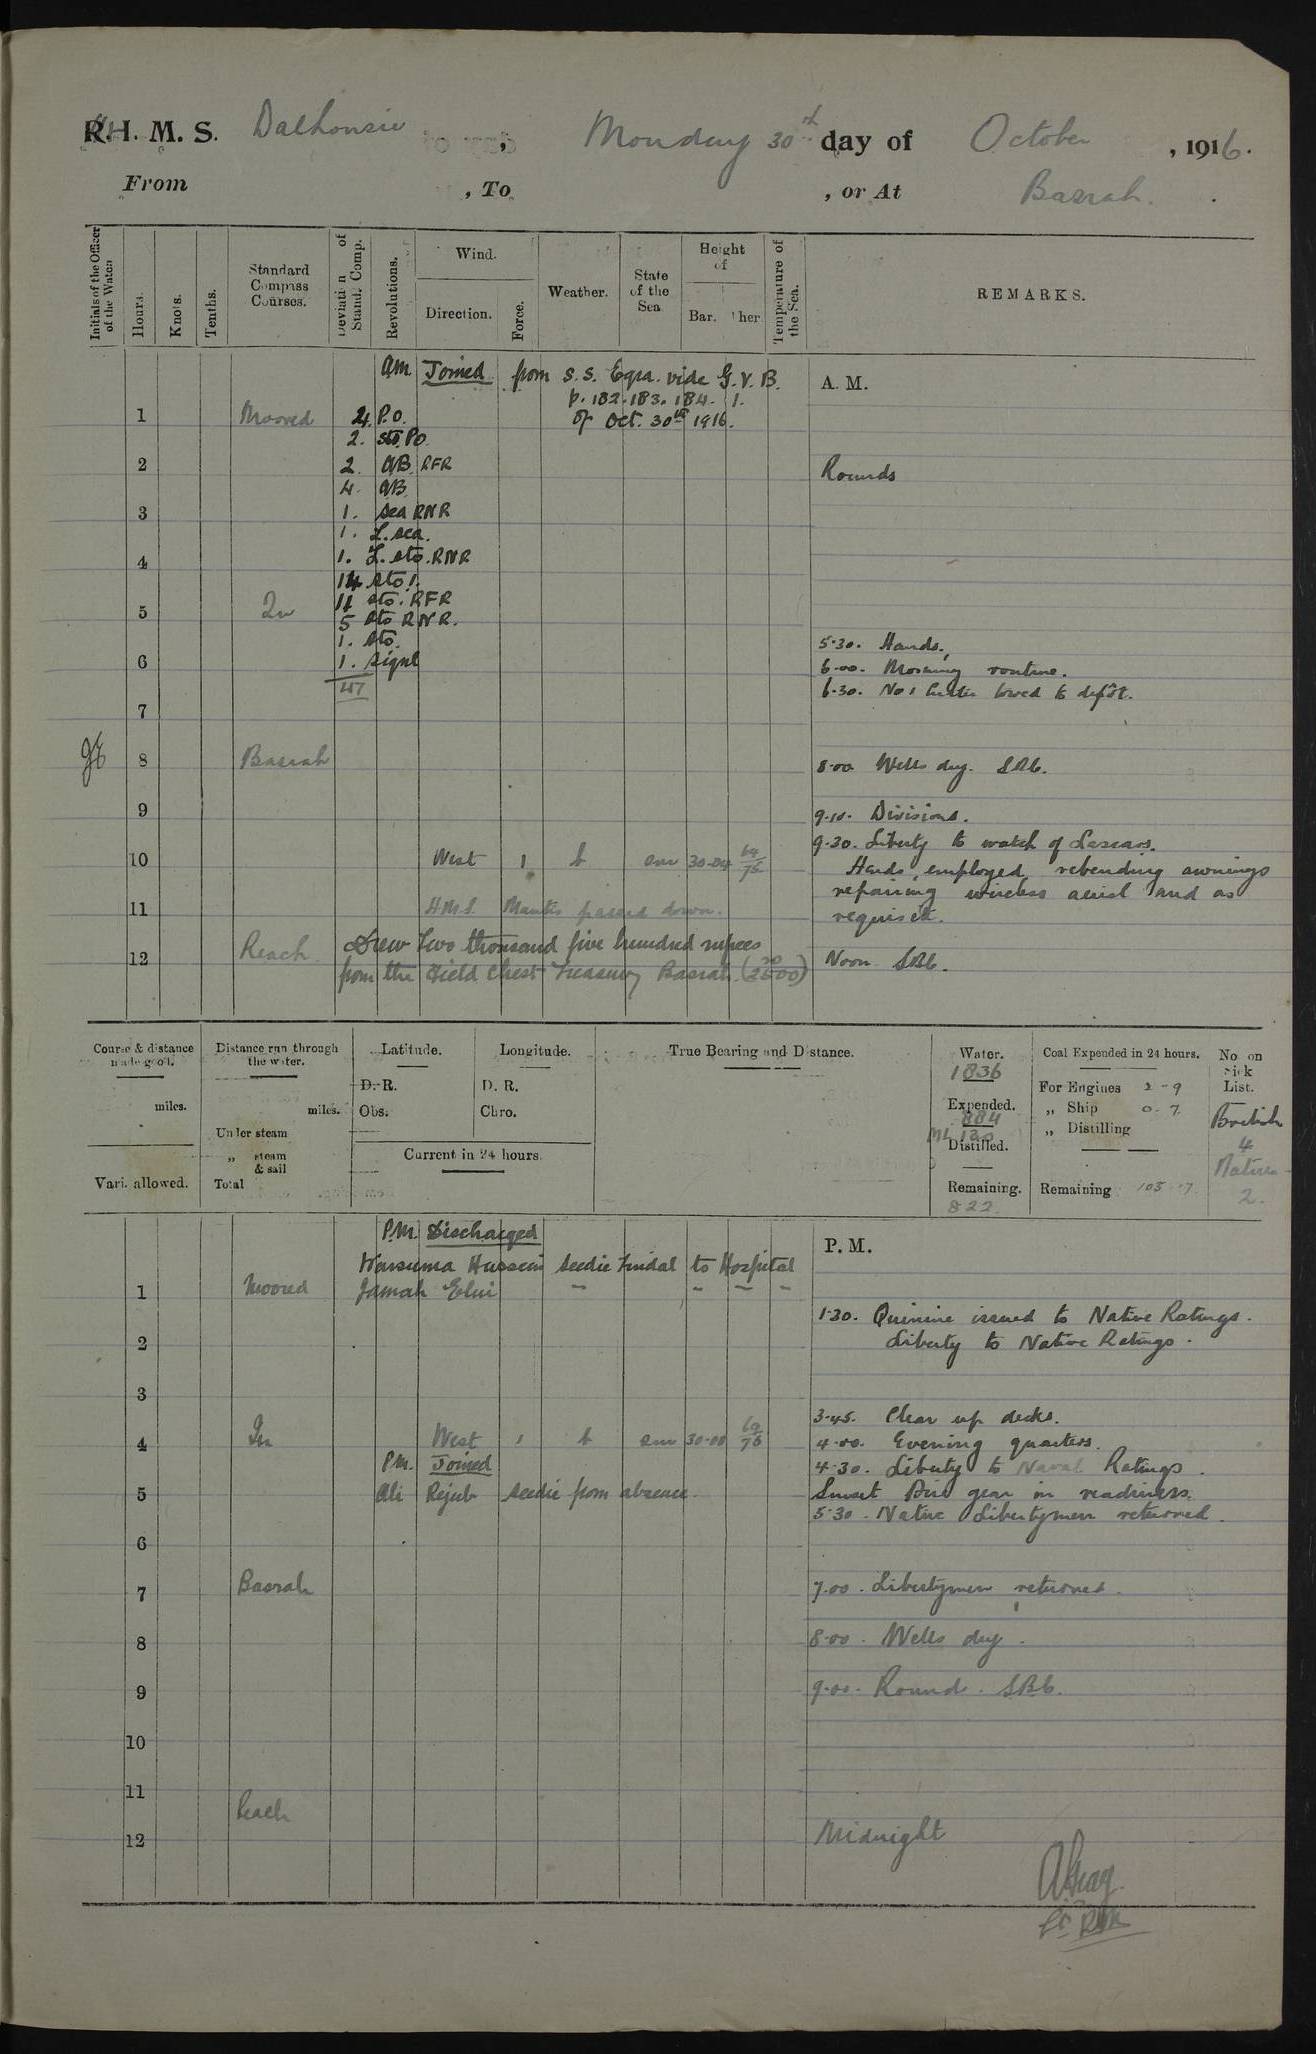 R.H. M. S. Dalhousie, Monday 30th day of October, 1916.
From , To , or At Basrah.
Initials of the Officer of the Watch
Hours.
Knots.
Tenths.
Standard Compass Courses.
Deviation of Stand. Comp.
Revolutions.
Wind.
Direction.
Force.
Weather.
State of the Sea
Height of
Bar. Ther
Temperature of the Sea.
REMARKS.
A. M.
am Joined from S.S. Egra. vide G.V.B.
p. 182.183.184. 1.
of Oct. 30th 1916.
1 Moored 4 P.O.
2. sto. Po
2 2. AB RFR Rounds
4. AB
3 1. Sea RNR
1. L. sea.
4 1. L. sto. RNR
14 sto 1.
5 In 11 sto. RFR
5 sto RNR.
1. sto.
6 1. signl
47
5.30. Hands.
6.00. Morning routine.
6.30. No 1 towed to depôt.
7
8 Basrah 8.00 Wells dry.
9 9.10. Divisions.
9.30. Liberty to watch of Lascars.
10 West 1 b sm 30.04 76
Hands employed rebending awnings
repairing wireless aerial and as
requisite.
11 H.M.S. Mantis passed down.
12 Reach Drew two thousand five hundred rupees
from the Field Chest Treasury Basrah (2500)
Noon
Course & distance made good.
miles.
Vari. allowed.
Distance run through the water.
miles.
Under steam
„ steam & sail
Total
Latitude.
D. R.
Obs.
Longitude.
D. R.
Chro.
Current in 24 hours.
True Bearing and Distance.
Water.
1836
Expended.
884
Distilled.
Remaining.
822
Coal Expended in 24 hours.
For Engines 2-9
„ Ship 0.7
„ Distilling
Remaining 103 7
No on Sick List.
British
4
Native
2.
P. M.
P.M. Discharged
Hussein seedie tindal to Hospital
Jamah - - - -
1 Moored
1.30. Quinine issued to Native Ratings.
2 Liberty to Native Ratings.
3
3.45. Clear up decks.
4 In West 1 b sm 30.00 76 4.00. Evening quarters.
PM. Joined 4.30. Liberty to Naval Ratings.
5 Ali Rejub seedie from absence. Sunset Fire gear in readiness.
5.30. Native Libertymen returned.
6
7 Basrah 7.00. Libertymen returned.
8 8.00. Wells dry.
9 9.00. Round.
10
11 Reach
12 Midnight